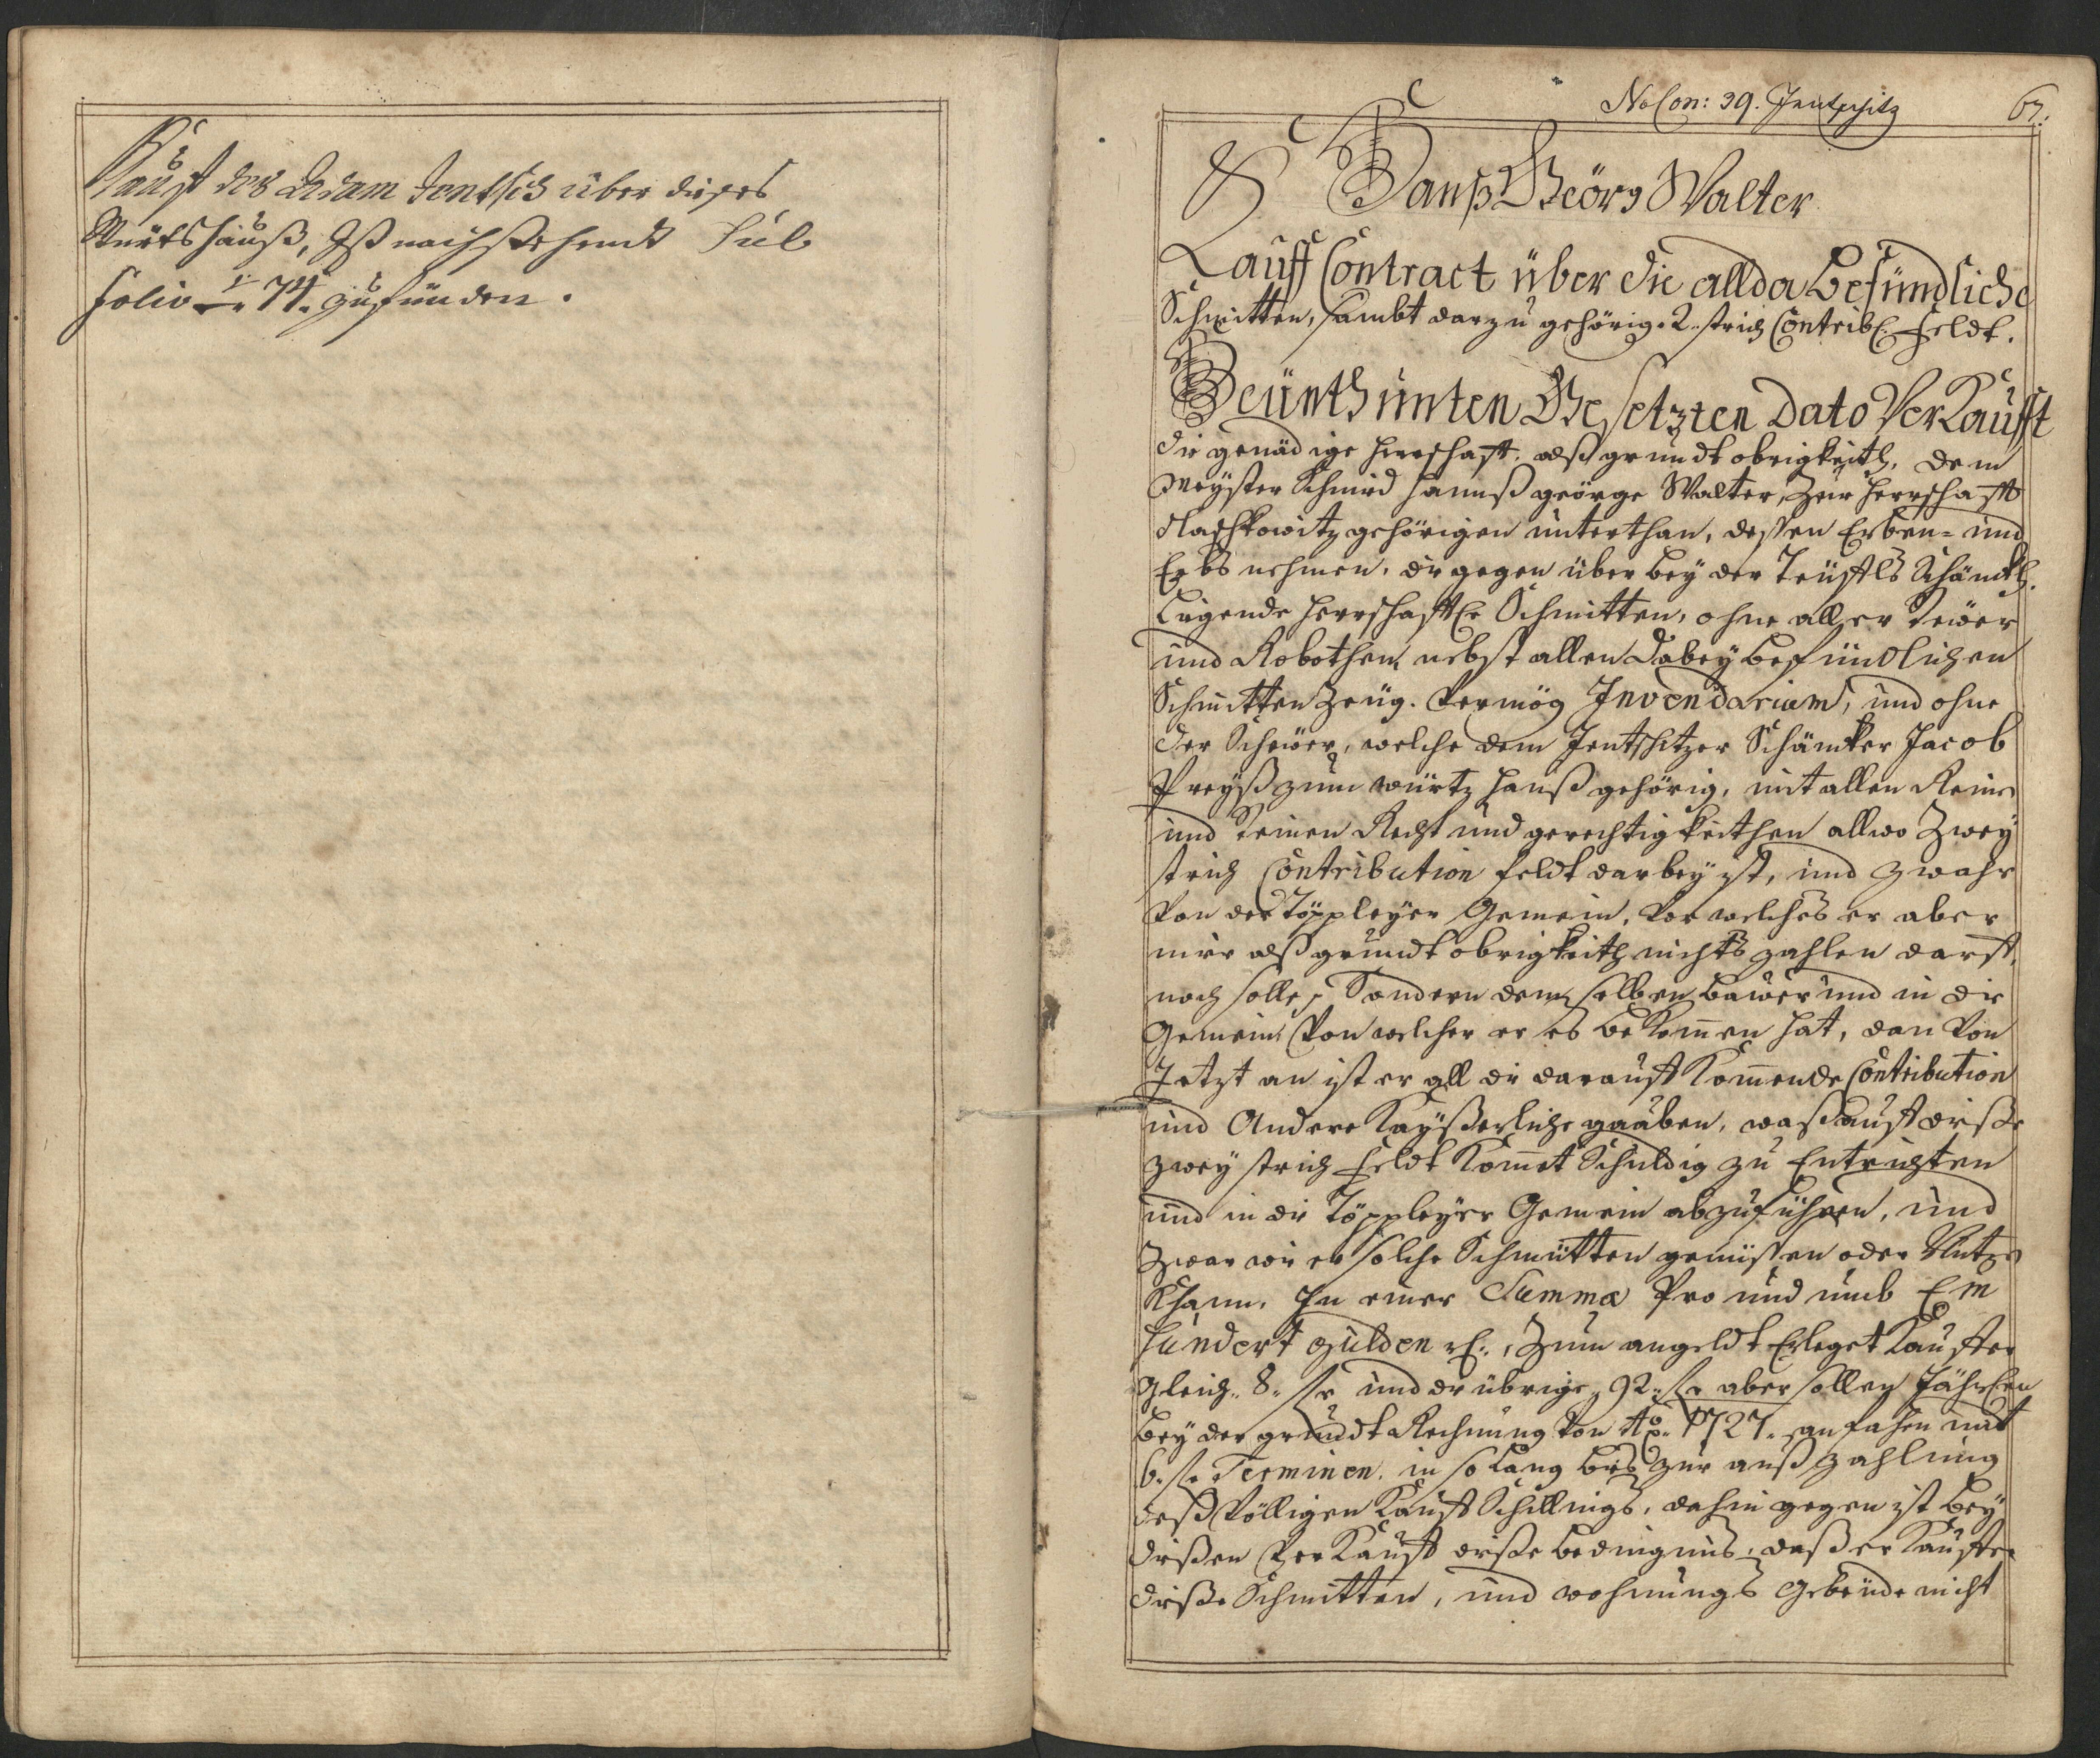 Kauff des Adam Jentsch über dieses
Würtshauß, Ist nachstehendt Sub
folio 74. zu fünden.
No Con: 39. Jentschitz
67.
Hanß Geörg Walter
Kauff Contract über die allda befündliche
Schmitten, sambt darzu gehörig. 2. strich Contrib. feldt.
Heünth unten Gesetzten dato Verkaufft
die genädige herrschafft, alß grundt obrigkeith, dem
Meyster Schmid hannß george Walter, Zur herrschafft
gehörigen unterthan, dessen Erben- und
Erbs nehmen, die gegen über bey der Schänckh
Ligende herrschafftl. Schmitten, ohne aller
und Robothen, nebst allen dabey befündlichen
Schmitten Zeüg. Vermög Invendarium, und ohne
der Scheüer, welche dem Jentschitzer Schäncker Jacob
Preyß zum würtz hauß gehörig, mit allen Rein
und Steinen Recht und gerechtigkeithen allwo Zwey
strich Contribution feldt darbey ist, und zwahr
Von der Töppleyer Gemein, vor welches er aber
mir alß grundt obrigkeith nichts zahlen darff,
noch solle, Sondern demselben bawer und in die
Gemein von welcher er es bekommen hat, dan Von
Jetzt an ist er all die darauff kommende Contribution
und Andere Kayßerliche gaaben, waß auff diße
zwey strich feldt kommet Schuldig zu Entrichten
und in die Töppleyer Gemein abzuführen, und
Zwar wie er solche Schmütten genüßen oder Nutzen
Khann, In einer Summa Pro und umb Ein
hundert gulden rh., Zum angeldt Erleget Kauffer
gleich 8. fl. und die übrige 92. fl. aber sollen Jährlichen
bey der grundt Rechnung von Ao. 1727. anfahen mit
6. fl. Terminen, in so lang bis zur auß zahlung
deß Völligen Kauff Schillings, dahin gegen ist bey
dißen Verkauff diße bedingnus, daß er Kauffer
diße Schmitten, und wohnungs Gebeüde nicht